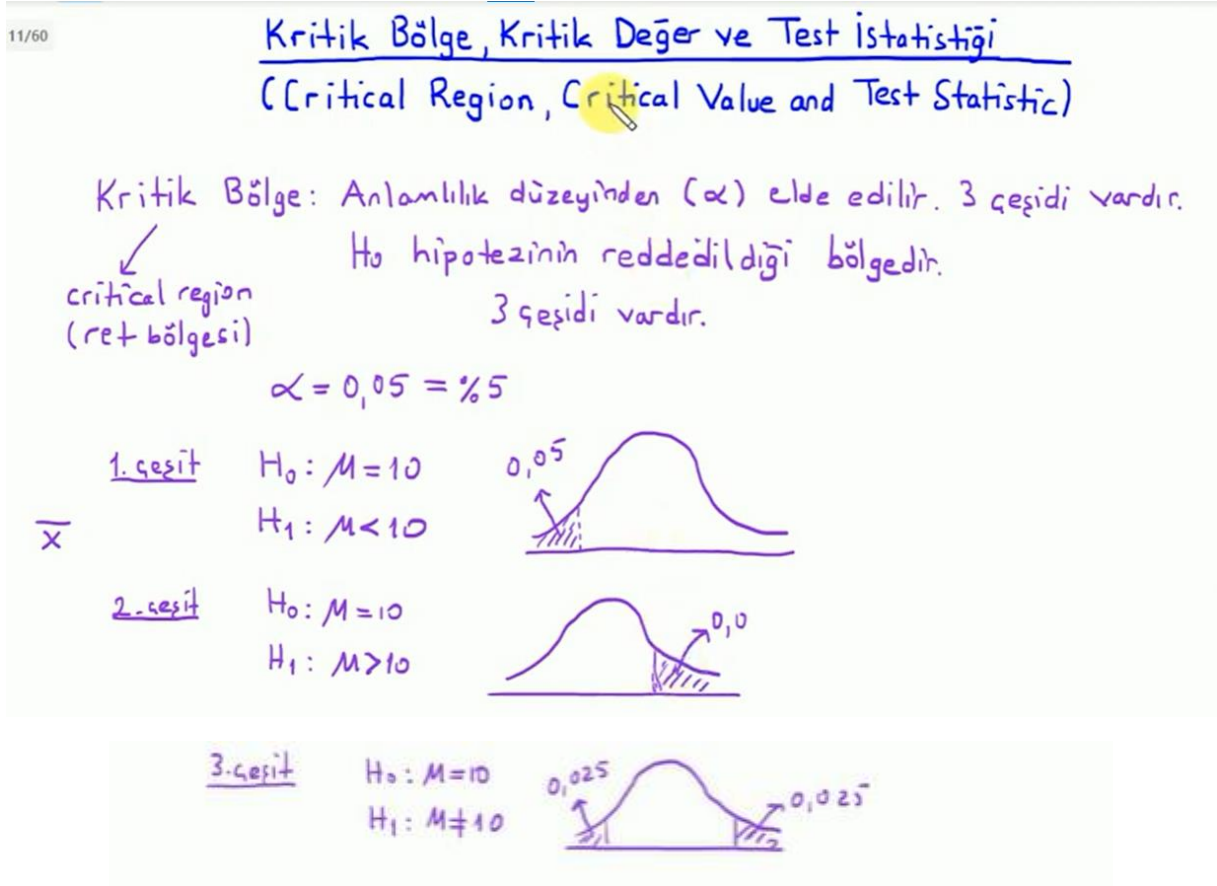 11/60
Kritik Bölge, Kritik Değer ve Test İstatistiği
(Critical Region, Critical Value and Test Statistic)
Kritik Bölge: Anlamlılık düzeyinden (α) elde edilir. 3 çeşidi vardır.
H₀ hipotezinin reddedildiği bölgedir.
critical region
(ret bölgesi)
3 çeşidi vardır.
α = 0,05 = %5
1. çeşit H₀ : M = 10 0,05
H₁ : M < 10
x̄
2. çeşit H₀ : M = 10 0,0
H₁ : M > 10
3. çeşit H₀ : M = 10 0,025 0,025
H₁ : M ≠ 10